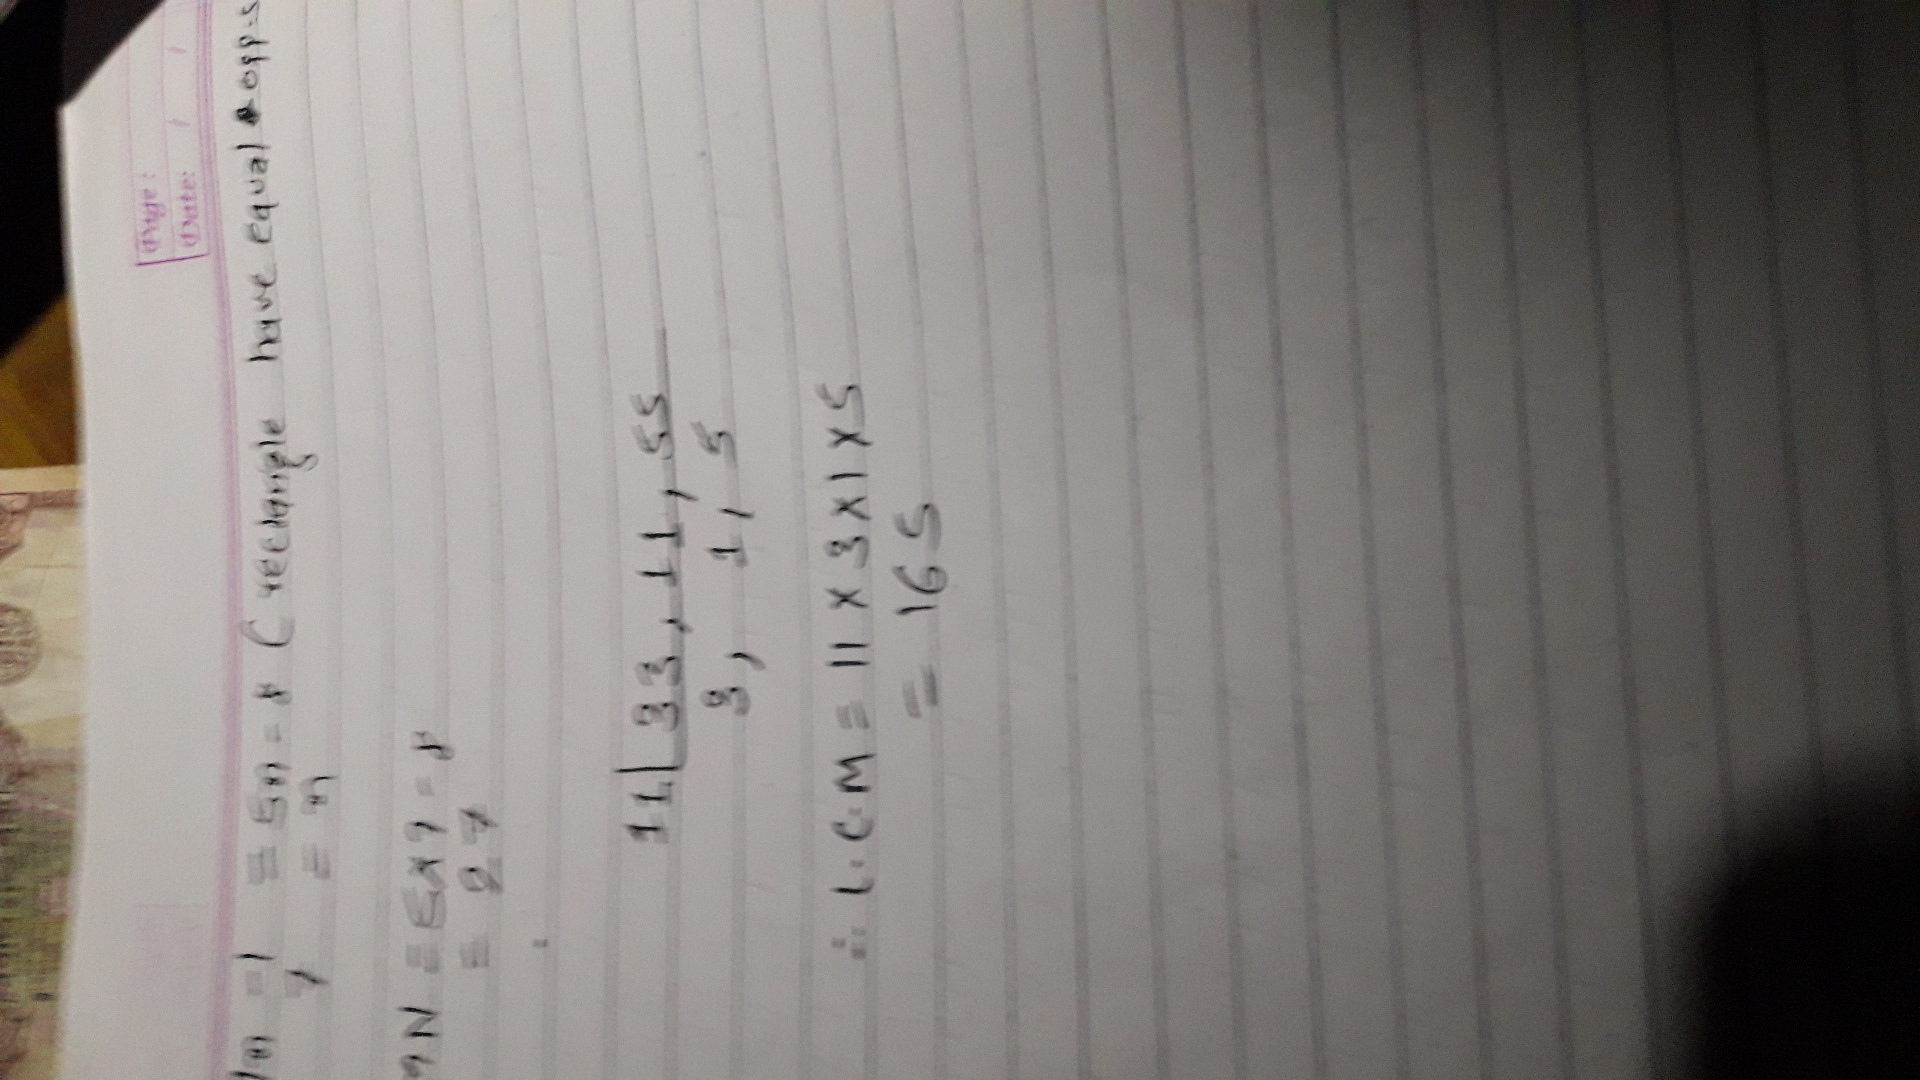 Page:
Date: / /
- 1 = 5n - 8 ( rectangle have equal opp. s
7 = n
MN = 5x7 - 8
= 27
11 33, 11, 55
3, 1, 5
∴ L.C.M = 11 x 3 x 1 x 5
= 165